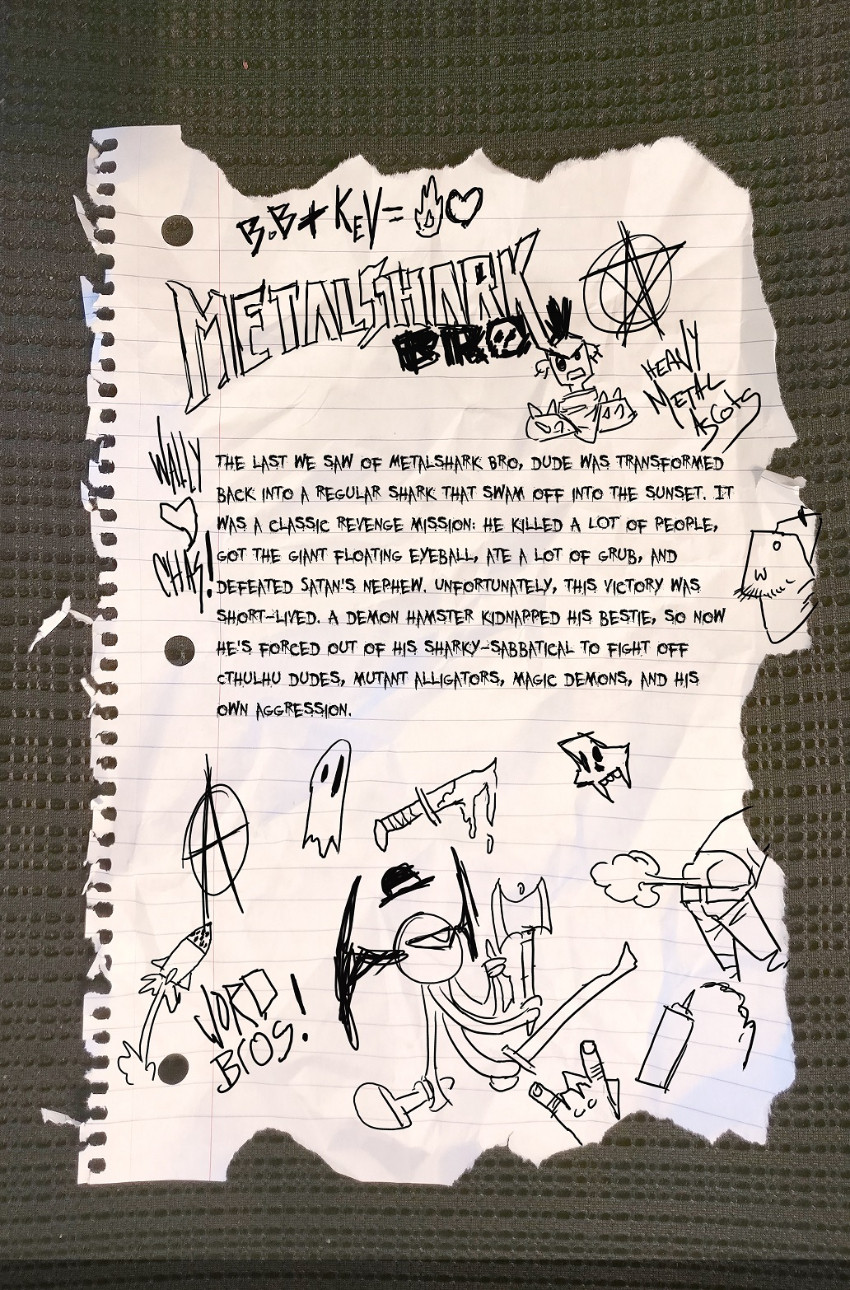 B.B + KEV =
METALSHARK
BRO
HEAVY
METAL
ASCOTS
WALLY
CHAS!
THE LAST WE SAW OF METALSHARK BRO, DUDE WAS TRANSFORMED
BACK INTO A REGULAR SHARK THAT SWAM OFF INTO THE SUNSET. IT
WAS A CLASSIC REVENGE MISSION: HE KILLED A LOT OF PEOPLE,
GOT THE GIANT FLOATING EYEBALL, ATE A LOT OF GRUB, AND
DEFEATED SATAN'S NEPHEW. UNFORTUNATELY, THIS VICTORY WAS
SHORT-LIVED. A DEMON HAMSTER KIDNAPPED HIS BESTIE, SO NOW
HE'S FORCED OUT OF HIS SHARKY-SABBATICAL TO FIGHT OFF
CTHULHU DUDES, MUTANT ALLIGATORS, MAGIC DEMONS, AND HIS
OWN AGGRESSION.
A
WORD
BROS!